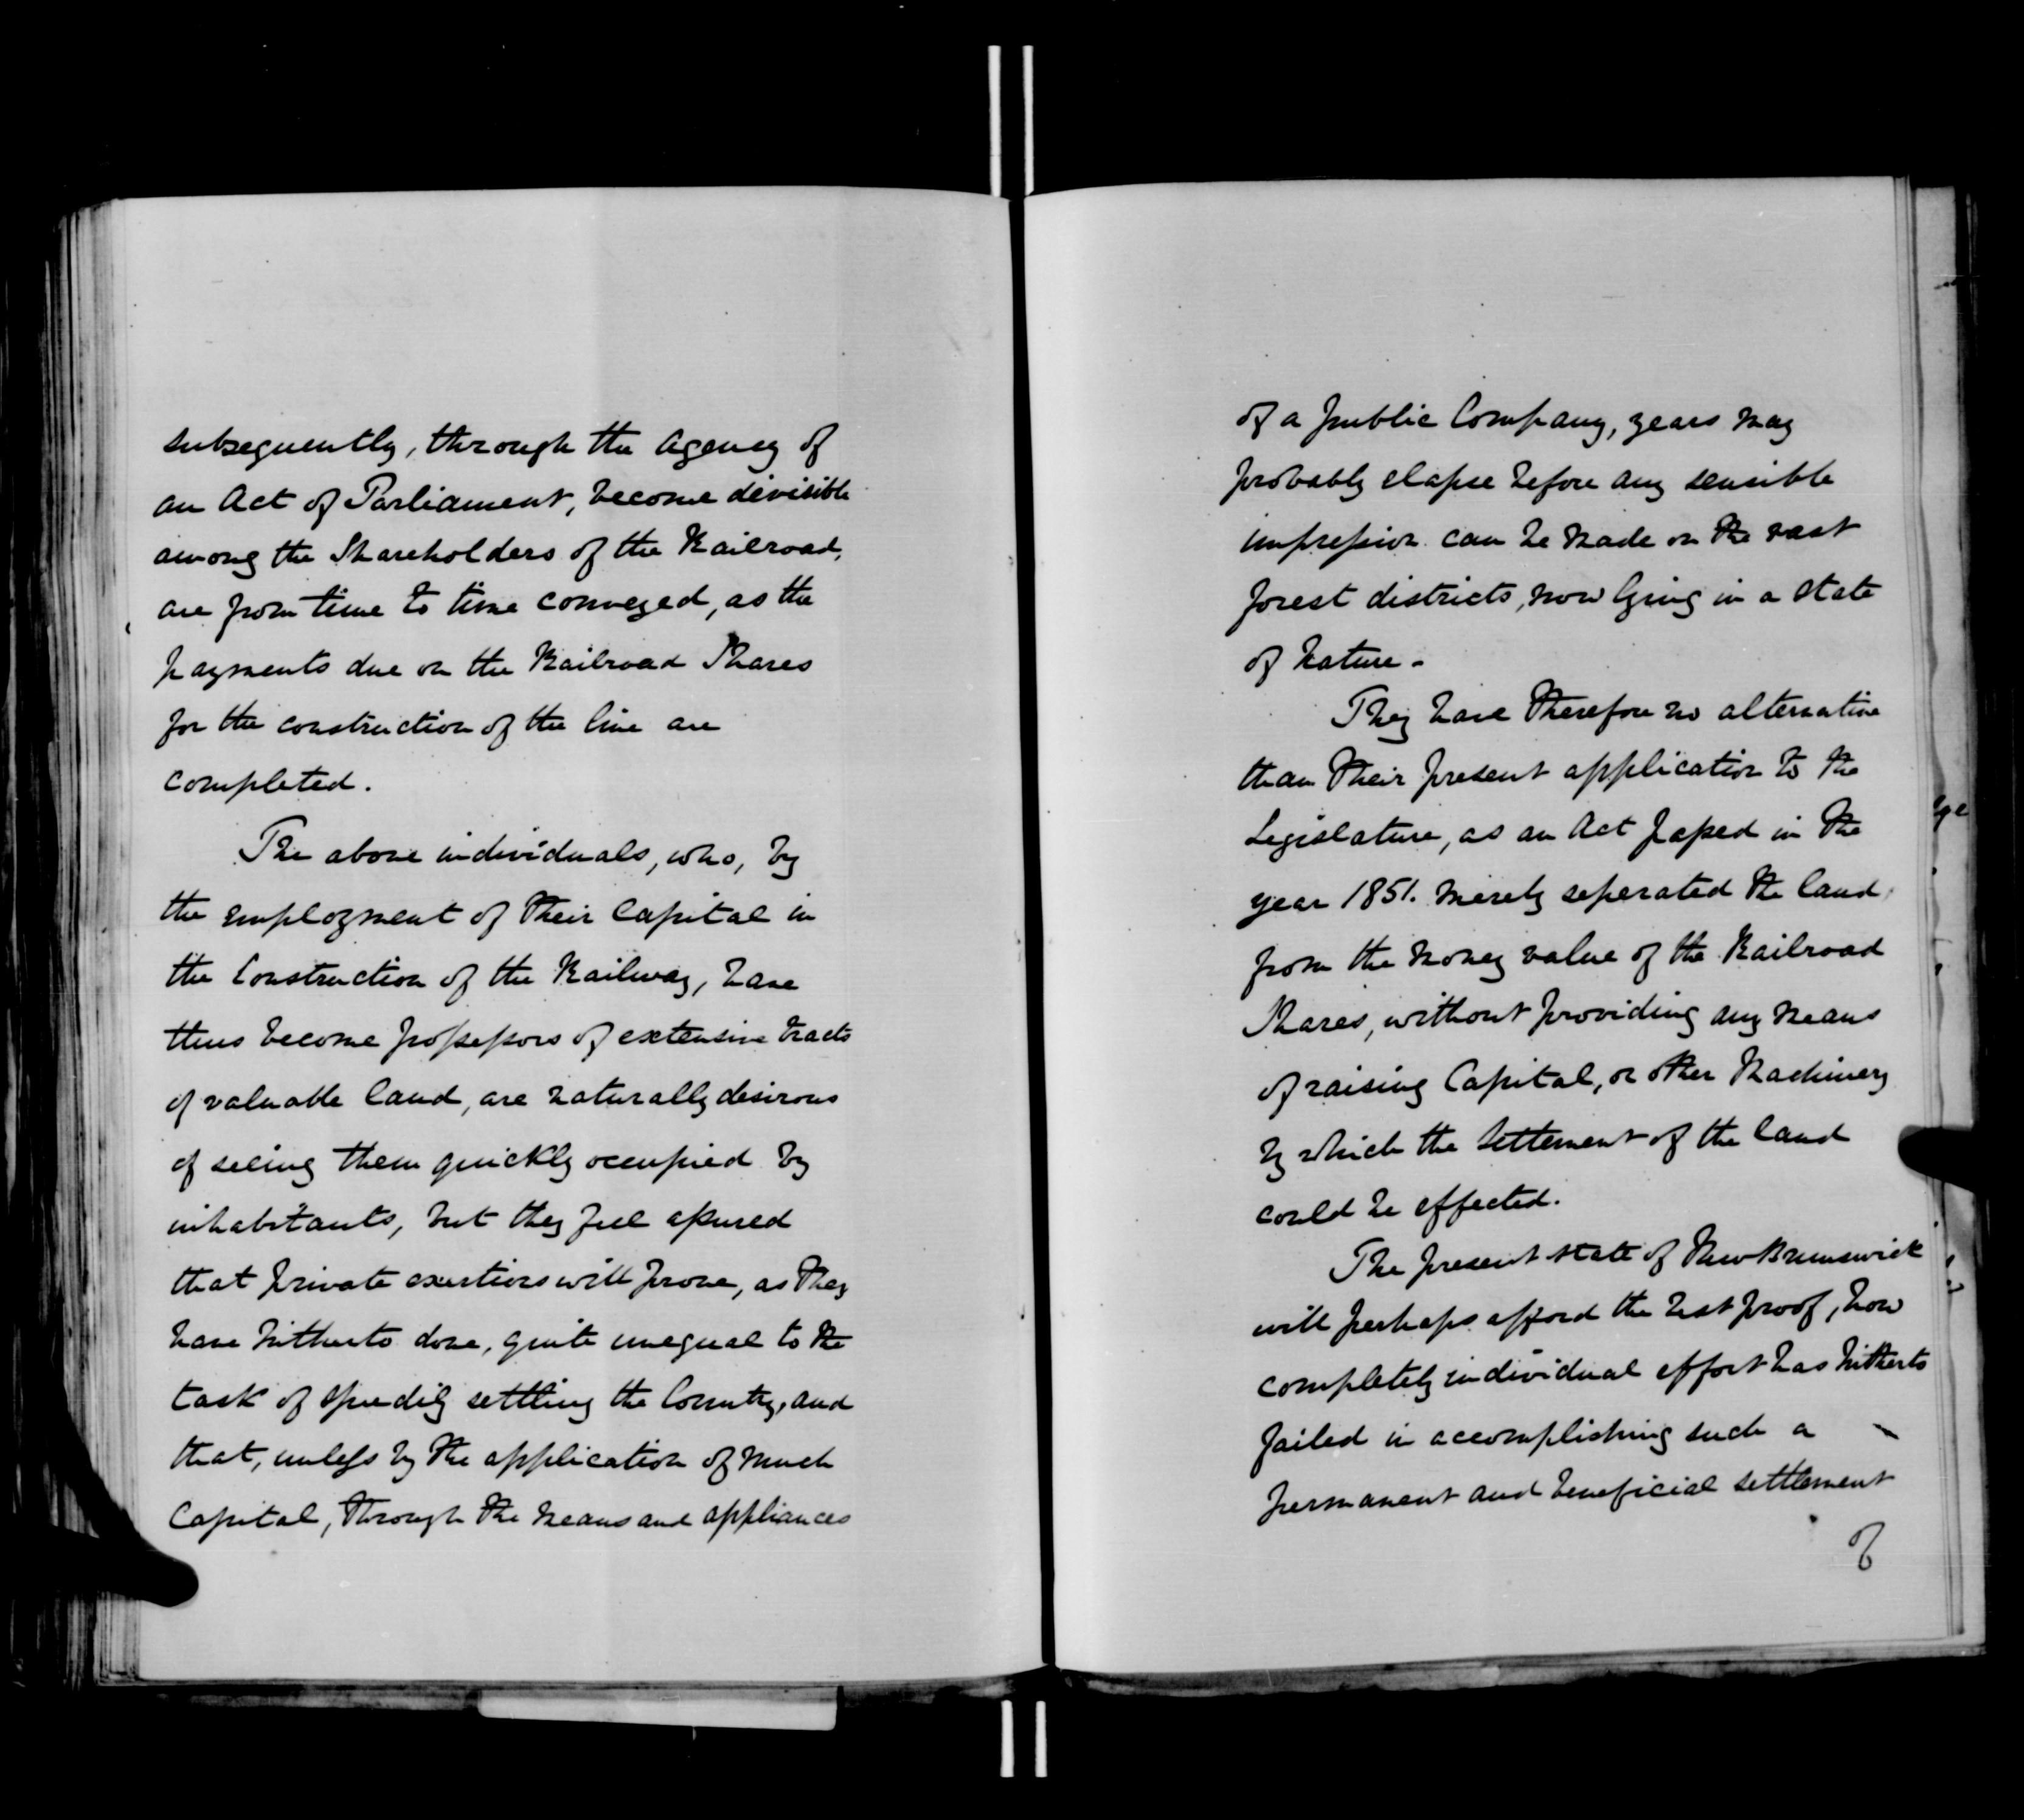 subsequently, through the Agency of
an Act of Parliament, become divisible
among the Shareholders of the Railroad,
are from time to time conveyed, as the
payments due on the Railroad Shares
for the construction of the line are
completed.
The above individuals, who, by
the employment of their Capital in
the Construction of the Railway, have
thus become possessors of extensive tracts
of valuable land, are naturally desirous
of seeing them quickly occupied by
inhabitants, but they feel assured
that private exertions will prove, as they
have hitherto done, quite unequal to the
task of speedily settling the Country, and
that, unless by the application of much
Capital, through the means and appliances
of a public Company, years may
probably elapse before any sensible
impression can be made on the vast
forest districts, now lying in a state
of Nature -
They have therefore no alternative
than their present application to the
Legislature, as an Act passed in the
year 1851. merely seperated the land
from the money value of the Railroad
Shares, without providing any means
of raising Capital, or other Machinery
by which the Settlement of the land
could be effected.
The present state of New Brunswick
will perhaps afford the best proof, how
completely individual effort has hitherto
failed in accomplishing such a
permanent and beneficial settlement
of